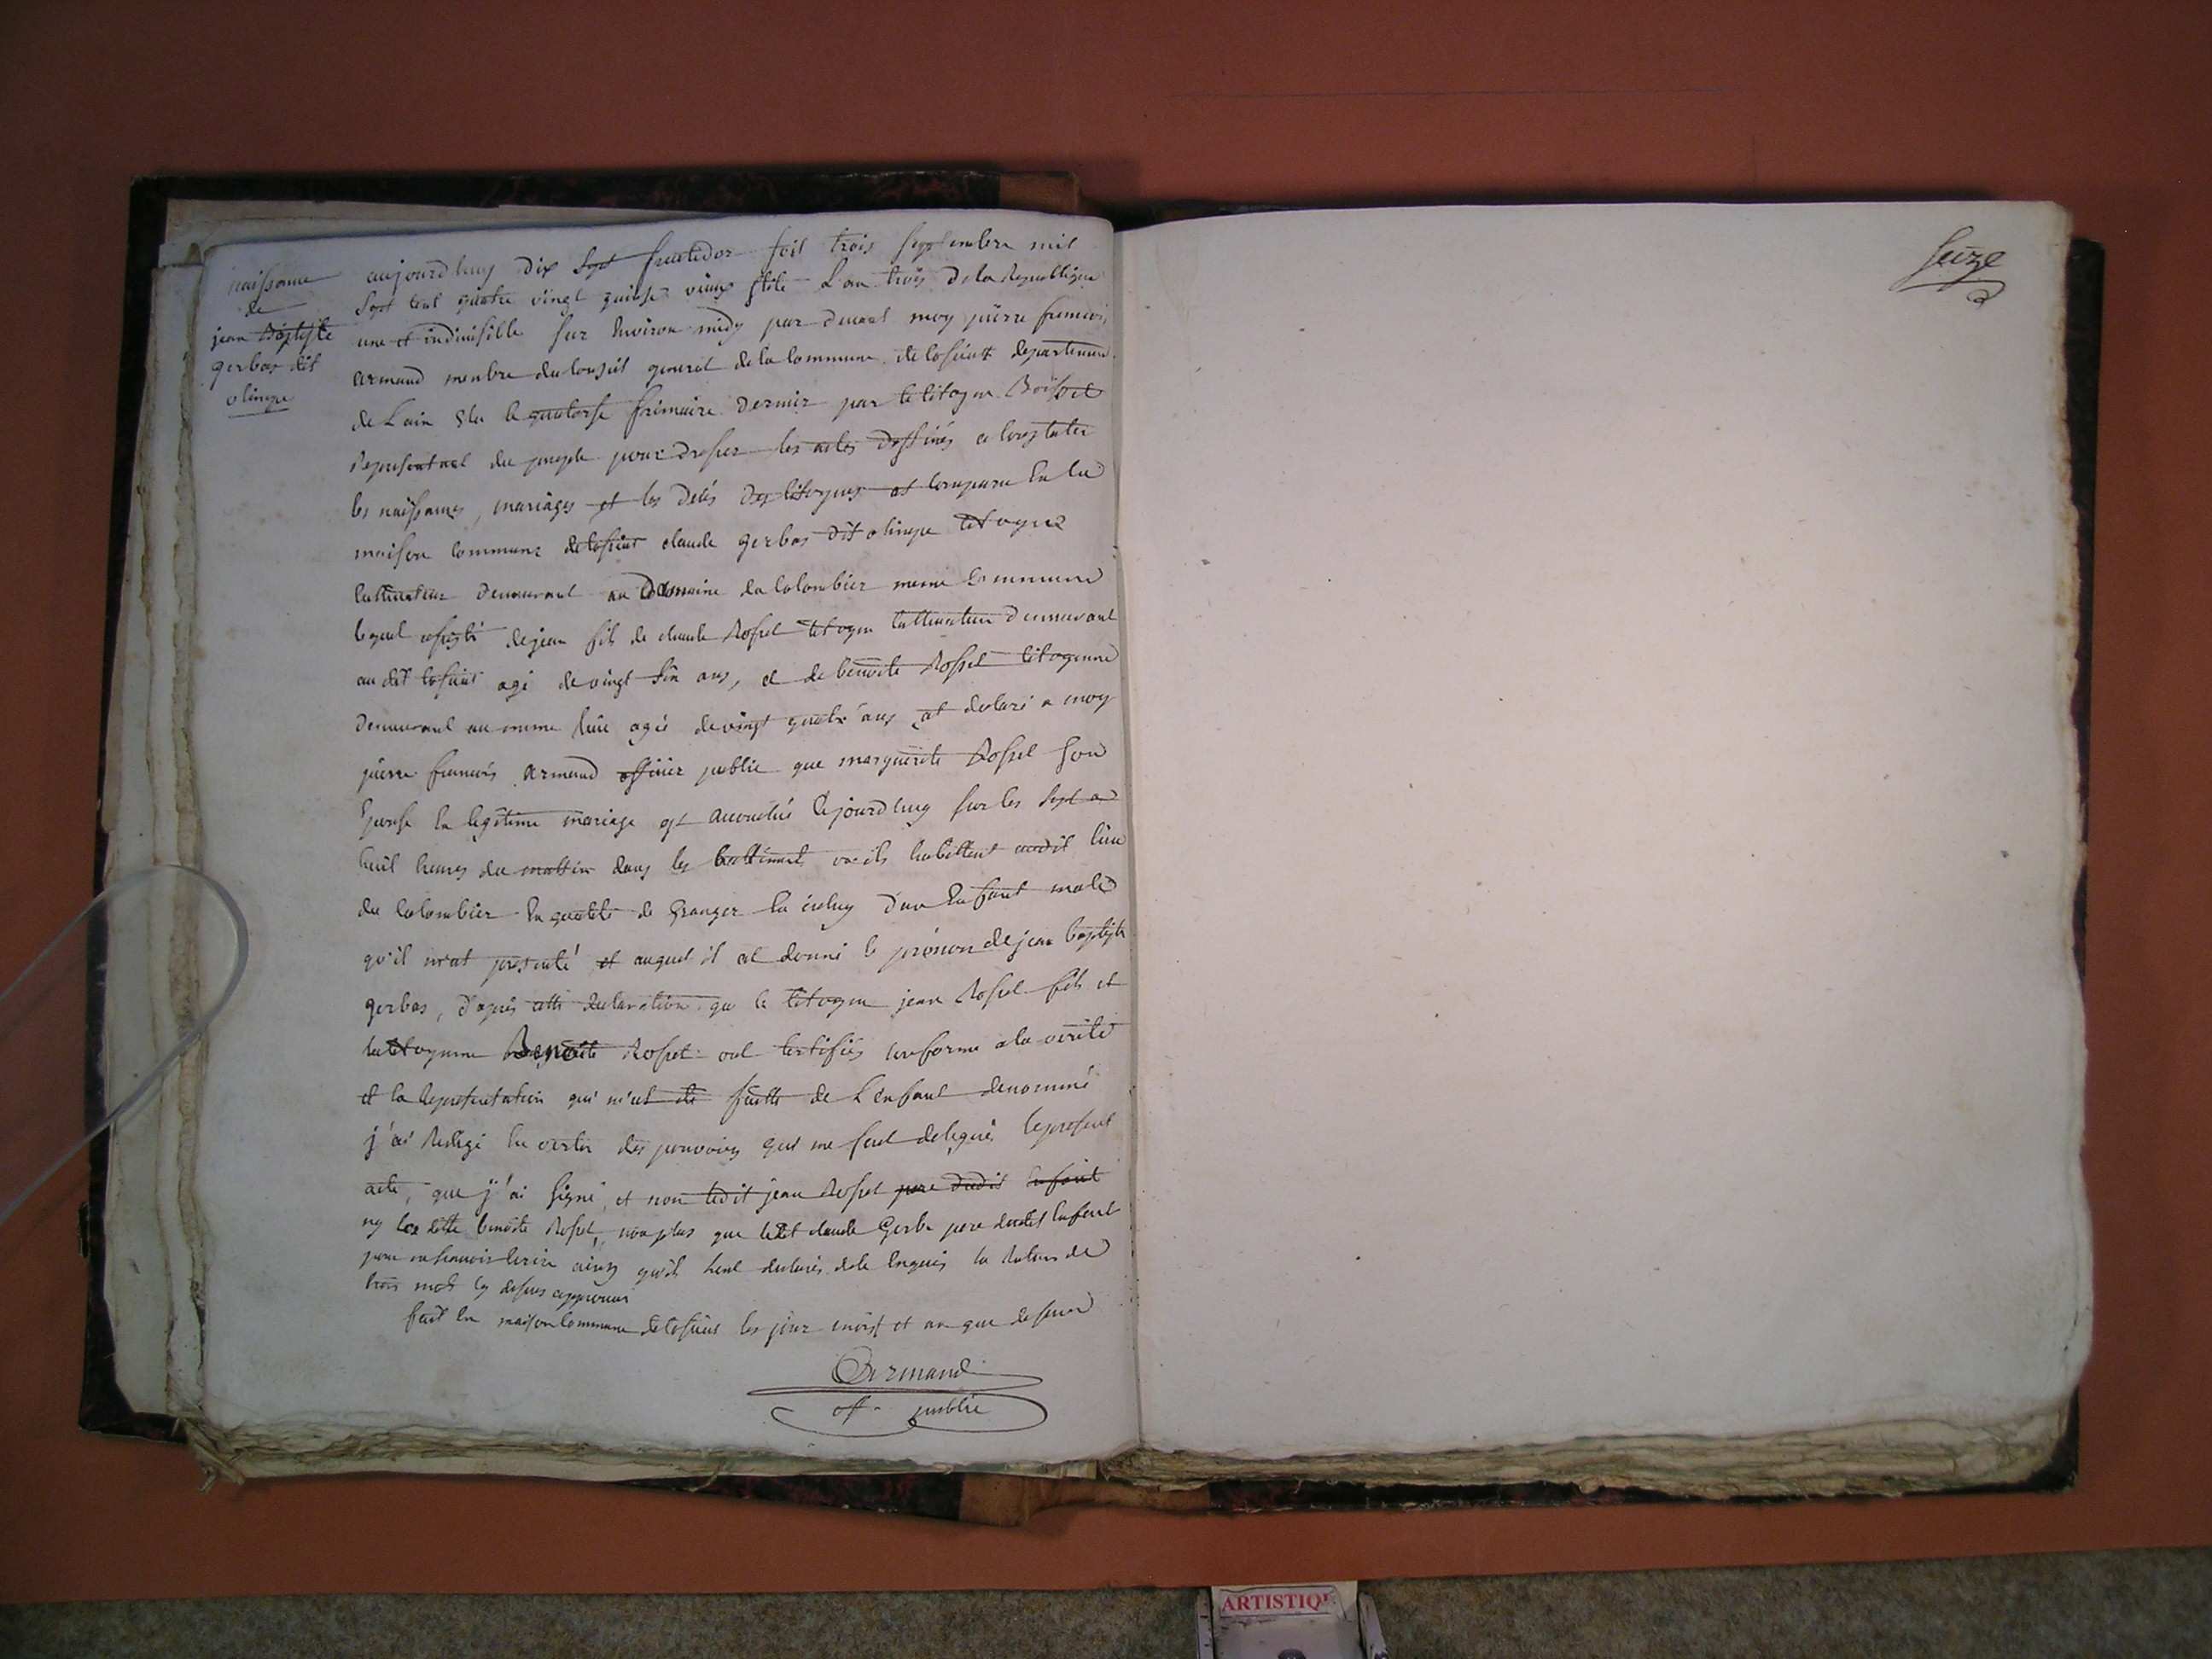 naissance
de
jean Baptiste
gerbas dit
olinpe
aujourdhuy dix sept fructidor soit trois septembre mil
sept cent quatre vingt quinse vieux stile L'an trois de la Republique
une et indivisible sur Environ midy par devant moy pierre francois
armand menbre du conseil general de la commune de departement
de L'ain Elu le quatorse frimaire dernier par le citoyen Boisset
Representant du peuple pour dresser les actes destinés a constater
les naissances, mariages et les decés des citoyens at comparu En la
maison commune claude gerbas dit olinpe citoyen
cultivateur demeurant au domaine du colombier meme commune
lequel assisté de jean fils de claude Rosset citoyen cultivateur demeurant
au dit agé de vingt ans, et de benoite Rosset citoyenne
demeurant au meme lieu agée de vingt quatre ans at declaré a moy
pierre francois armand officier public que marguerite Rosset son
Epouse En legitime mariage est accouchée cejourdhuy sur les sept a
huit heures du mattin dans les battiment ou ils habittent audit lieu
du colombier En qualité de Granger En d'un Enfant male
qu'il m'at presenté et auquel il at donné le prénom de jean baptiste
gerbas, d'aprés cette declaration que le citoyen jean Rosset fils et
la citoyenne Benoite Rosset ont certifiés conforme a la vérité
et la Representation qui m'at été faitte de L'enfant denommé
j'ai Redigé En vertu des pouvoirs qui me sont delegués le present
acte, que j'ai signé, et non ledit jean Rosset pere dudit Enfant
ny la ditte benoite Rosset, non plus que ledit claude Gerba pere dudit Enfant
pour ne scavoir Ecrire ainsy qu'ils declarés de ce Enquis la Rature de
trois mots cy dessus approuvé
fait En maison commune les jour mois et an que dessus
Armand
off. public
seize